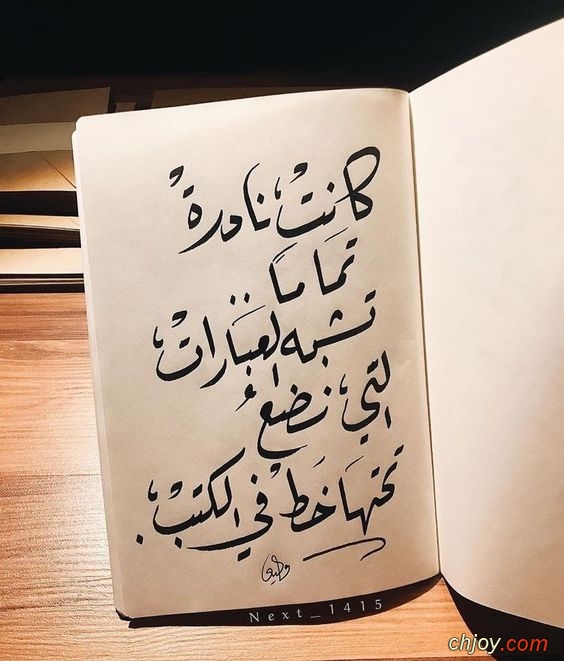 كانت نادرة
تمامًا ..
تشبه العبارات
التي نضع
تحتها خط في الكتب .
Next_1415
chjoy.com